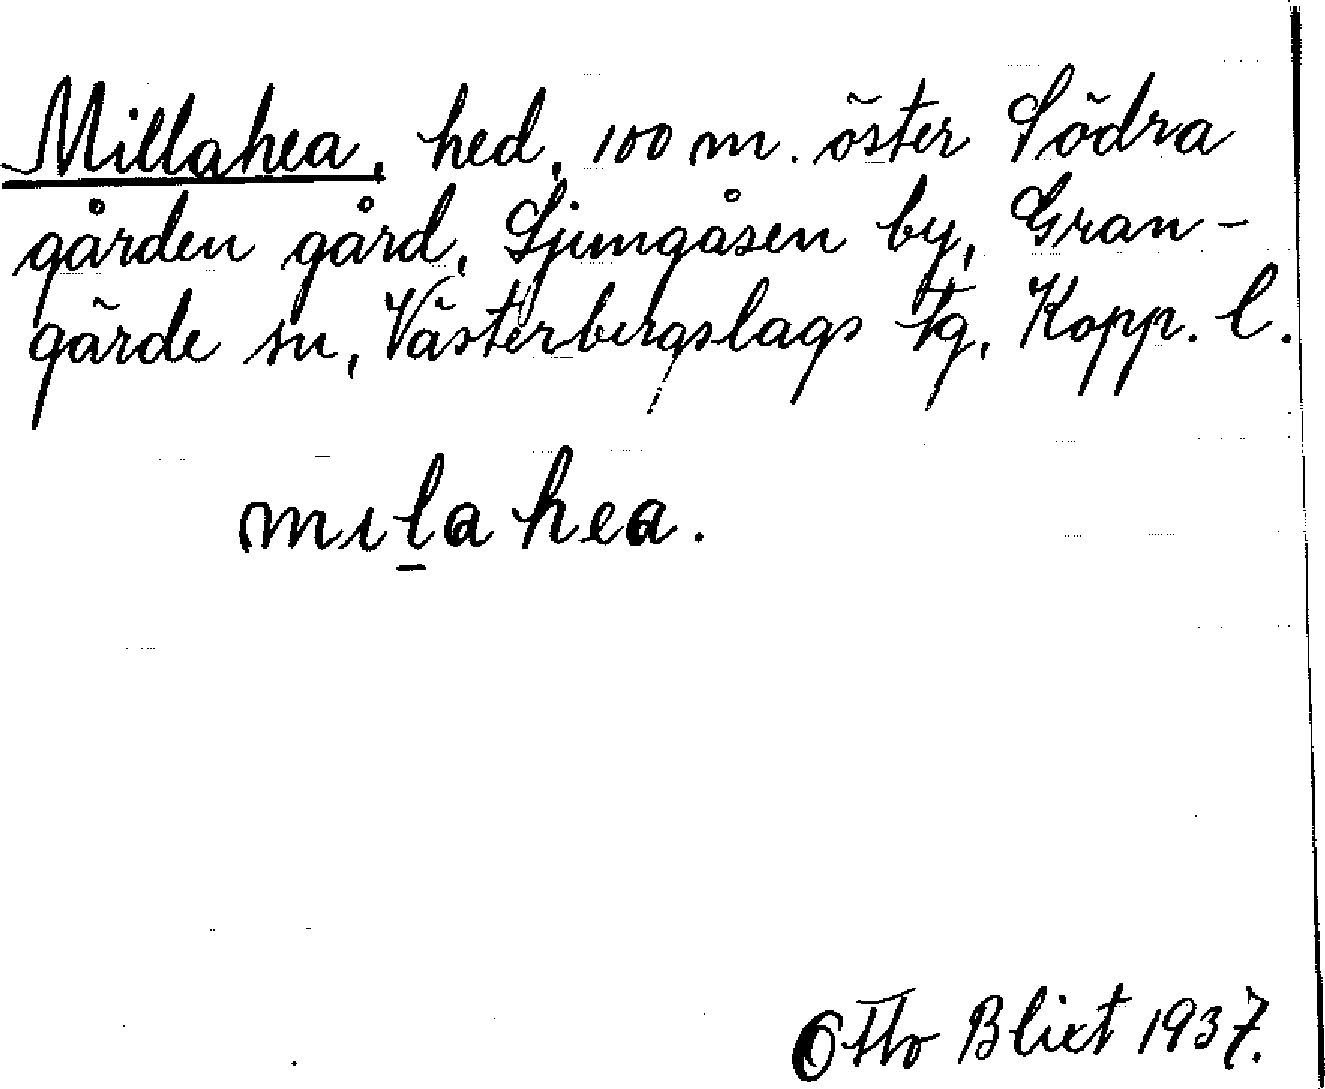 Millahea, hed, 100 m. öster Södra
gården gård, Ljungåsen by, Gran-
gärde sn, Västerbergslags tg, Kopp. l.
mıla hea.
Otto Blixt 1937.